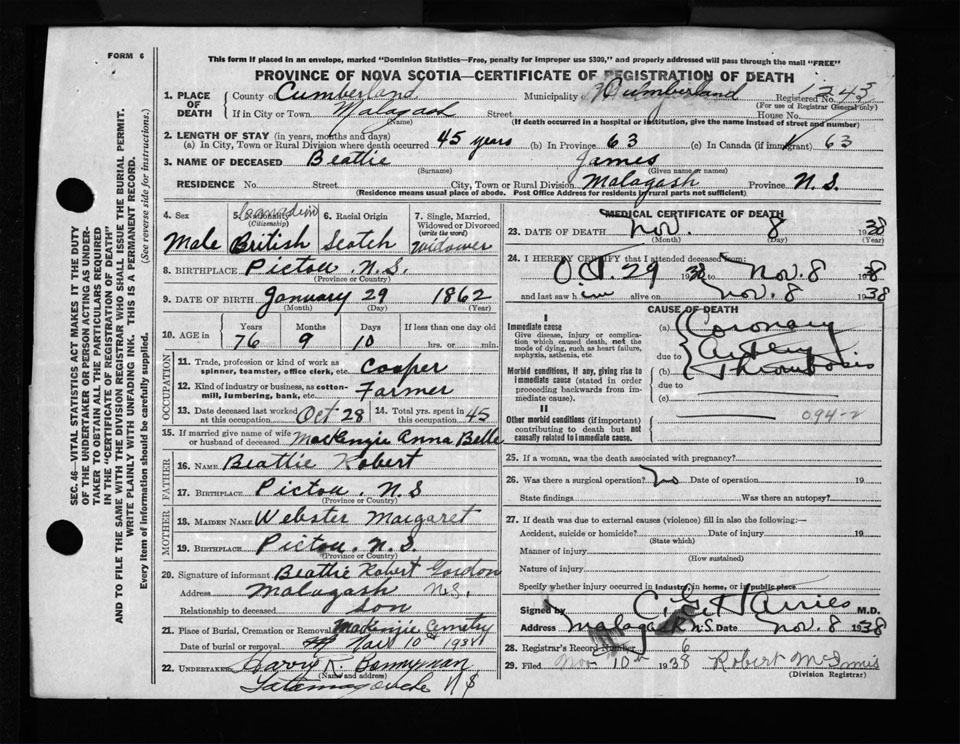 FORM 6
This form if placed in an envelope, marked "Dominion Statistics—Free, penalty for improper use $300," and properly addressed will pass through the mail "FREE"
PROVINCE OF NOVA SCOTIA—CERTIFICATE OF REGISTRATION OF DEATH
1. PLACE OF DEATH County of Cumberland Municipality Cumberland Registered No. 1243
(For use of Registrar General only)
If in City or Town Malagash Street House No.
(Name) (If death occurred in a hospital or institution, give the name instead of street and number)
2. LENGTH OF STAY (in years, months and days)
(a) In City, Town or Rural Division where death occurred 45 years (b) In Province 63 (c) In Canada (if immigrant) 63
3. NAME OF DECEASED Beattie James
(Surname) (Given name or names)
RESIDENCE No. Street City, Town or Rural Division Malagash Province N.S.
(Residence means usual place of abode. Post Office Address for residents in rural parts not sufficient)
SEC. 46—VITAL STATISTICS ACT MAKES IT THE DUTY
OF THE UNDERTAKER OR PERSON ACTING AS UNDER-
TAKER TO OBTAIN ALL THE PARTICULARS REQUIRED
IN THE "CERTIFICATE OF REGISTRATION OF DEATH"
AND TO FILE THE SAME WITH THE DIVISION REGISTRAR WHO SHALL ISSUE THE BURIAL PERMIT.
WRITE PLAINLY WITH UNFADING INK. THIS IS A PERMANENT RECORD.
Every item of information should be carefully supplied. (See reverse side for instructions.)
4. Sex 5. Nationality (Citizenship) 6. Racial Origin 7. Single, Married, Widowed or Divorced (write the word)
Canadian
Male British Scotch Widower
8. BIRTHPLACE Pictou N.S.
(Province or Country)
9. DATE OF BIRTH January 29 1862
(Month) (Day) (Year)
10. AGE in Years Months Days If less than one day old
76 9 10 hrs. or min.
OCCUPATION
11. Trade, profession or kind of work as spinner, teamster, office clerk, etc. Cooper
12. Kind of industry or business, as cotton-mill, lumbering, bank, etc. Farmer
13. Date deceased last worked at this occupation Oct 28 14. Total yrs. spent in this occupation 45
15. If married give name of wife or husband of deceased MacKenzie Anna Belle
FATHER
16. NAME Beattie Robert
17. BIRTHPLACE Pictou. N.S
(Province or Country)
MOTHER
18. MAIDEN NAME Webster Margaret
19. BIRTHPLACE Pictou. N.S.
(Province or Country)
20. Signature of informant Beattie Robert Gordon
Address Malagash N.S.
Relationship to deceased Son
21. Place of Burial, Cremation or Removal MacKenzie Cemetry
Date of burial or removal Nov 10th 1938
22. UNDERTAKER Harry K. Bonnyman
(Name and address)
Tatamagouche N S
MEDICAL CERTIFICATE OF DEATH
23. DATE OF DEATH Nov. 8 1938
(Month) (Day) (Year)
24. I HEREBY CERTIFY that I attended deceased from:
Oct. 29 1938 to Nov. 8 1938
and last saw him alive on Nov. 8 1938
CAUSE OF DEATH
I
Immediate cause
Give disease, injury or complication which caused death, not the mode of dying, such as heart failure, asphyxia, asthenia, etc.
(a) Coronary
due to Artery
Morbid conditions, if any, giving rise to immediate cause (stated in order proceeding backwards from immediate cause)
(b) Thrombosis
due to
(c)
II
Other morbid conditions (if important) contributing to death but not causally related to immediate cause.
094-2
25. If a woman, was the death associated with pregnancy?
26. Was there a surgical operation? No Date of operation 19
State findings Was there an autopsy?
27. If death was due to external causes (violence) fill in also the following:—
Accident, suicide or homicide? Date of injury 19
(State which)
Manner of injury
(How sustained)
Nature of injury
Specify whether injury occurred in industry, in home, or in public place
Signed by Harries M.D.
Address Malagash N.S. Date Nov. 8 1938
28. Registrar's Record Number 6
29. Filed Nov 10th 1938 Robert McInnis
(Division Registrar)